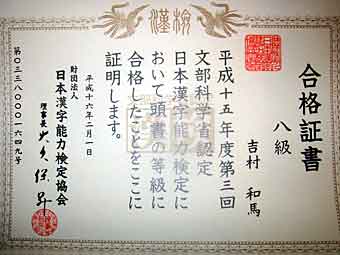 漢検
合格証書
八級
吉村 和馬
平成十五年度第三回
文部科学省認定
日本漢字能力検定に
おいて頭書の等級に
合格したことをここに
証明します。
平成十六年二月一日
財団法人
日本漢字能力検定協会
理事長 大久保 昇
第〇三三八〇〇〇一六四九号